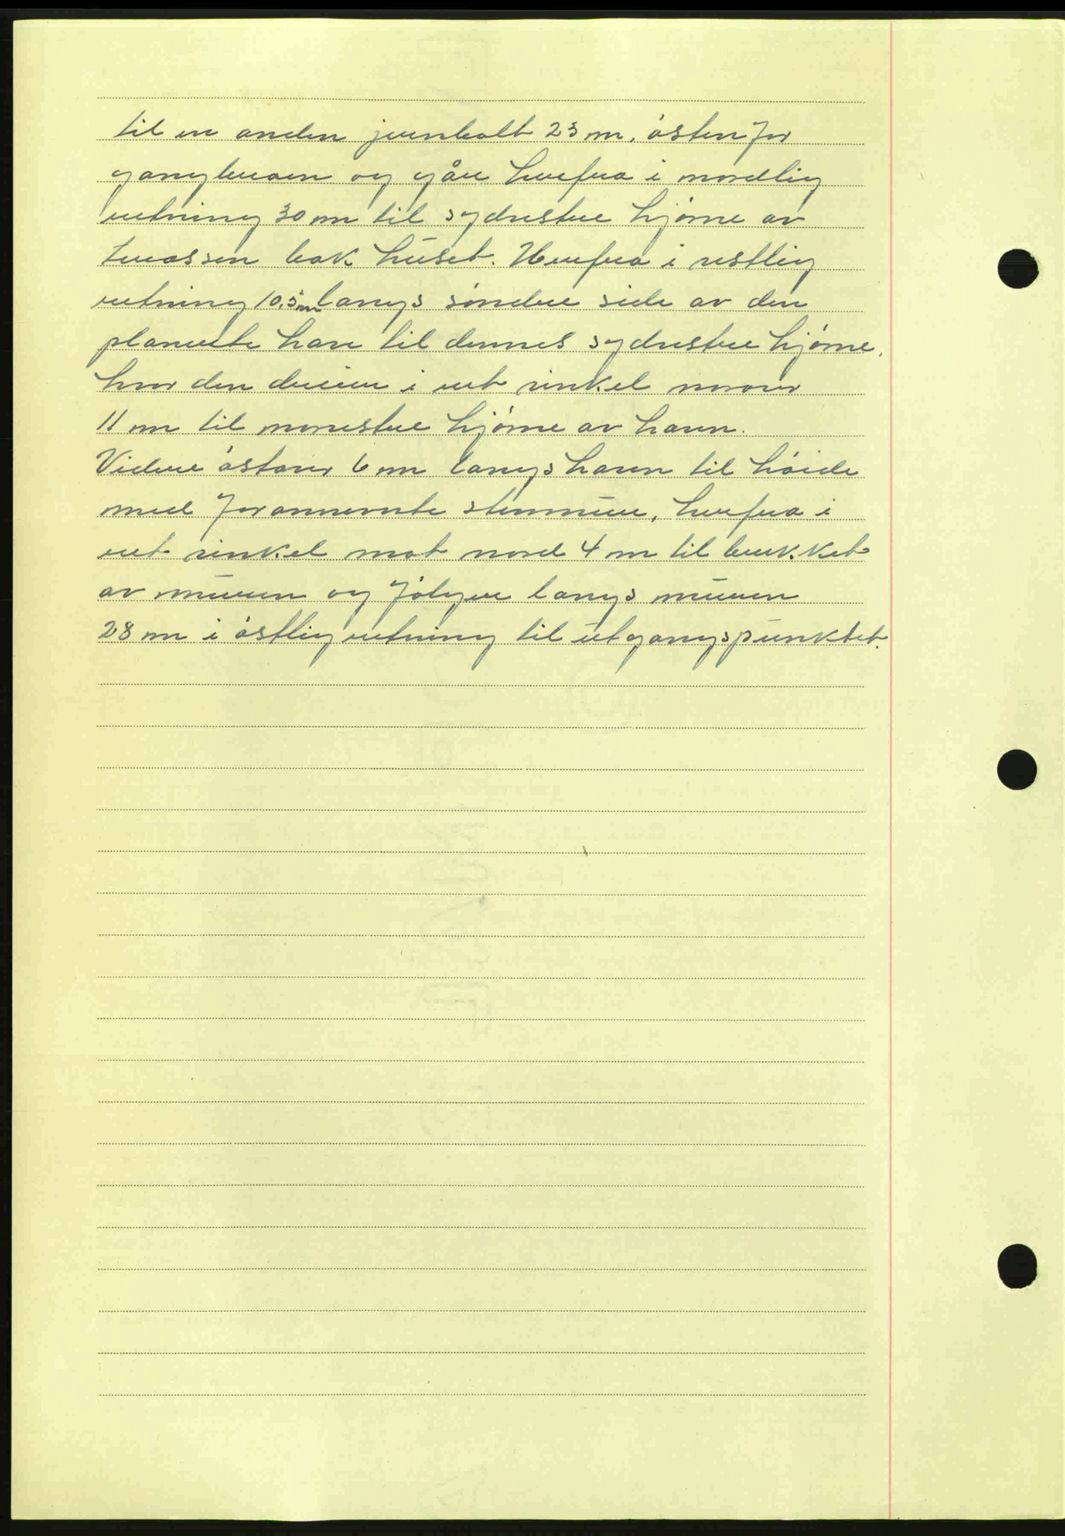 til en anden jernbolt 23 m. østenfor
gangbroen og går herfra i nordlig
retning 30 m til sydvestre hjørne av
terassen bak huset. Herfra i vestlig
retning 10,5 m langs søndre side av den
planerte have til dennes sydvestre hjørne,
hvor den dreier i ret vinkel nordover
11 m til nordvestre hjørne av haven.
Videre østover 6 m langs haven til høide
med forannevnte stenmur, herfra i
ret vinkel mot nord 4 m til brekket
av muren og følger langs muren
28 m i østlig retning til utgangspunktet.